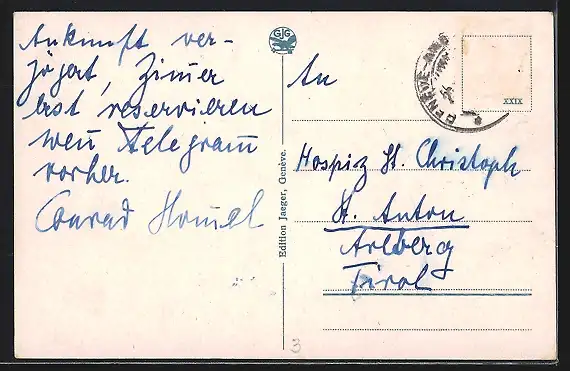 Ankunft ver-
zögert, Zimer
erst reservieren
wen Telegram
vorher.
Conrad
GJG
Edition Jaeger, Genève.
An
Hospiz St. Christoph
St. Anton
Arlberg
Tirol
GENÈVE
XXIX
3